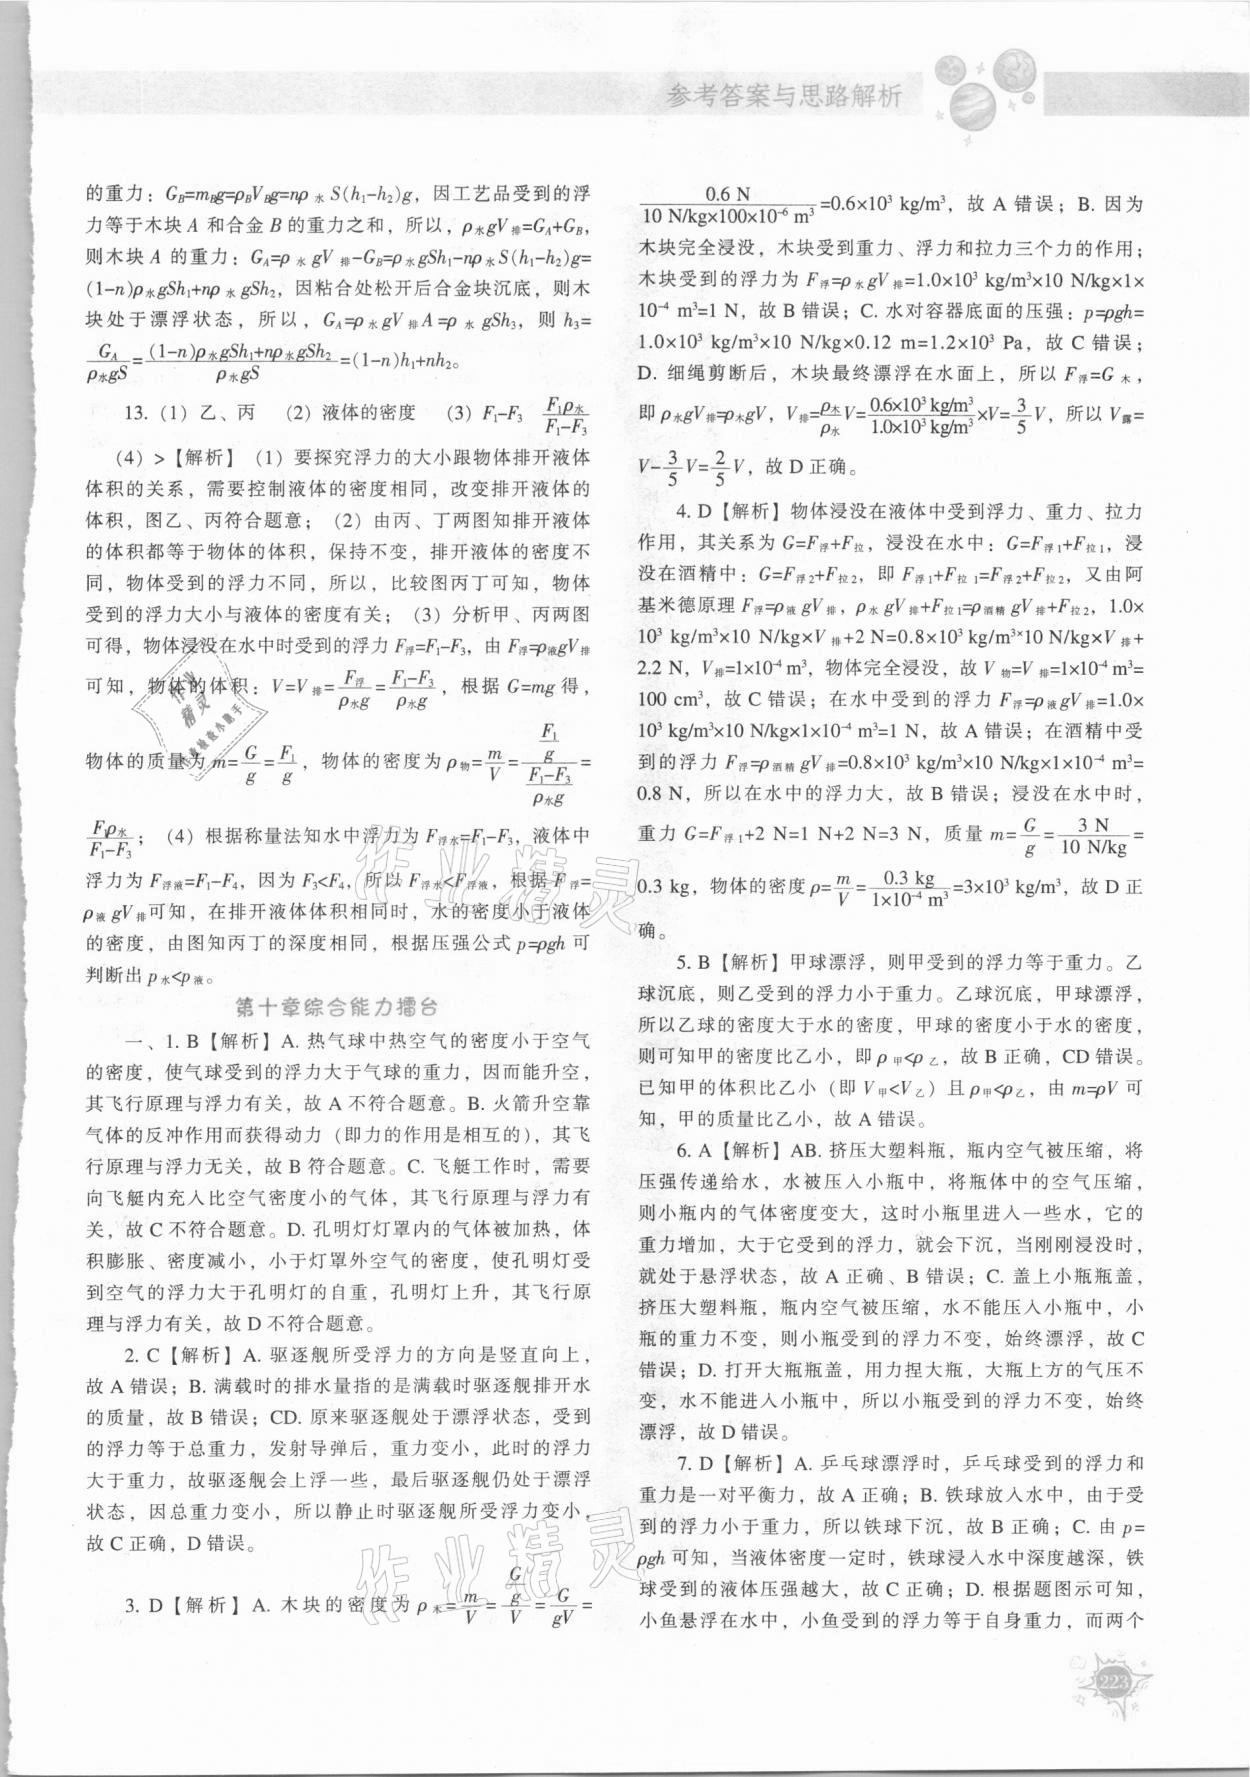 参考答案与思路解析
的重力：G_B=m_Bg=ρ_BV_Bg=nρ水S(h₁-h₂)g，因工艺品受到的浮
力等于木块 A 和合金 B 的重力之和，所以，ρ水gV排=G_A+G_B，
则木块 A 的重力：G_A=ρ水gV排-G_B=ρ水gSh₁-nρ水S(h₁-h₂)g=
(1-n)ρ水gSh₁+nρ水gSh₂，因粘合处松开后合金块沉底，则木
块处于漂浮状态，所以，G_A=ρ水gV排A=ρ水gSh₃，则 h₃=
G_A/(ρ水gS)=((1-n)ρ水gSh₁+nρ水gSh₂)/(ρ水gS)=(1-n)h₁+nh₂。
13. (1) 乙、丙 (2) 液体的密度 (3) F₁-F₃ F₁ρ水/(F₁-F₃)
(4) >【解析】(1) 要探究浮力的大小跟物体排开液体
体积的关系，需要控制液体的密度相同，改变排开液体的
体积，图乙、丙符合题意；(2) 由丙、丁两图知排开液体
的体积都等于物体的体积，保持不变，排开液体的密度不
同，物体受到的浮力不同，所以，比较图丙丁可知，物体
受到的浮力大小与液体的密度有关；(3) 分析甲、丙两图
可得，物体浸没在水中时受到的浮力 F浮=F₁-F₃，由 F浮=ρ液gV排
可知，物体的体积：V=V排=F浮/(ρ水g)=(F₁-F₃)/(ρ水g)，根据 G=mg 得，
物体的质量为 m=G/g=F₁/g，物体的密度为 ρ物=m/V=(F₁/g)/((F₁-F₃)/(ρ水g))=
F₁ρ水/(F₁-F₃)；(4) 根据称量法知水中浮力为 F浮水=F₁-F₃，液体中
浮力为 F浮液=F₁-F₄，因为 F₃<F₄，所以 F浮水<F浮液，根据 F浮=
ρ液gV排可知，在排开液体体积相同时，水的密度小于液体
的密度，由图知丙丁的深度相同，根据压强公式 p=ρgh 可
判断出 p水<p液。
第十章综合能力擂台
一、1. B【解析】A. 热气球中热空气的密度小于空气
的密度，使气球受到的浮力大于气球的重力，因而能升空，
其飞行原理与浮力有关，故 A 不符合题意。B. 火箭升空靠
气体的反冲作用而获得动力（即力的作用是相互的），其飞
行原理与浮力无关，故 B 符合题意。C. 飞艇工作时，需要
向飞艇内充入比空气密度小的气体，其飞行原理与浮力有
关，故 C 不符合题意。D. 孔明灯灯罩内的气体被加热，体
积膨胀、密度减小，小于灯罩外空气的密度，使孔明灯受
到空气的浮力大于孔明灯的自重，孔明灯上升，其飞行原
理与浮力有关，故 D 不符合题意。
2. C【解析】A. 驱逐舰所受浮力的方向是竖直向上，
故 A 错误；B. 满载时的排水量指的是满载时驱逐舰排开水
的质量，故 B 错误；CD. 原来驱逐舰处于漂浮状态，受到
的浮力等于总重力，发射导弹后，重力变小，此时的浮力
大于重力，故驱逐舰会上浮一些，最后驱逐舰仍处于漂浮
状态，因总重力变小，所以静止时驱逐舰所受浮力变小，
故 C 正确，D 错误。
3. D【解析】A. 木块的密度为 ρ木=m/V=(G/g)/V=G/(gV)=
0.6 N/(10 N/kg×100×10⁻⁶ m³)=0.6×10³ kg/m³，故 A 错误；B. 因为
木块完全浸没，木块受到重力、浮力和拉力三个力的作用；
木块受到的浮力为 F浮=ρ水gV排=1.0×10³ kg/m³×10 N/kg×1×
10⁻⁴ m³=1 N，故 B 错误；C. 水对容器底面的压强：p=ρgh=
1.0×10³ kg/m³×10 N/kg×0.12 m=1.2×10³ Pa，故 C 错误；
D. 细绳剪断后，木块最终漂浮在水面上，所以 F浮=G木，
即 ρ水gV排=ρ木gV，V排=ρ木/ρ水V=(0.6×10³ kg/m³)/(1.0×10³ kg/m³)×V=3/5V，所以 V露=
V-3/5V=2/5V，故 D 正确。
4. D【解析】物体浸没在液体中受到浮力、重力、拉力
作用，其关系为 G=F浮+F拉，浸没在水中：G=F浮1+F拉1，浸
没在酒精中：G=F浮2+F拉2，即 F浮1+F拉1=F浮2+F拉2，又由阿
基米德原理 F浮=ρ液gV排，ρ水gV排+F拉1=ρ酒精gV排+F拉2，1.0×
10³ kg/m³×10 N/kg×V排+2 N=0.8×10³ kg/m³×10 N/kg×V排+
2.2 N，V排=1×10⁻⁴ m³，物体完全浸没，故 V物=V排=1×10⁻⁴ m³=
100 cm³，故 C 错误；在水中受到的浮力 F浮=ρ液gV排=1.0×
10³ kg/m³×10 N/kg×1×10⁻⁴ m³=1 N，故 A 错误；在酒精中受
到的浮力 F浮=ρ酒精gV排=0.8×10³ kg/m³×10 N/kg×1×10⁻⁴ m³=
0.8 N，所以在水中的浮力大，故 B 错误；浸没在水中时，
重力 G=F浮1+2 N=1 N+2 N=3 N，质量 m=G/g=3 N/(10 N/kg)=
0.3 kg，物体的密度 ρ=m/V=0.3 kg/(1×10⁻⁴ m³)=3×10³ kg/m³，故 D 正
确。
5. B【解析】甲球漂浮，则甲受到的浮力等于重力。乙
球沉底，则乙受到的浮力小于重力。乙球沉底，甲球漂浮，
所以乙球的密度大于水的密度，甲球的密度小于水的密度，
则可知甲的密度比乙小，即 ρ甲<ρ乙，故 B 正确，CD 错误。
已知甲的体积比乙小（即 V甲<V乙）且 ρ甲<ρ乙，由 m=ρV 可
知，甲的质量比乙小，故 A 错误。
6. A【解析】AB. 挤压大塑料瓶，瓶内空气被压缩，将
压强传递给水，水被压入小瓶中，将瓶体中的空气压缩，
则小瓶内的气体密度变大，这时小瓶里进入一些水，它的
重力增加，大于它受到的浮力，就会下沉，当刚刚浸没时，
就处于悬浮状态，故 A 正确、B 错误；C. 盖上小瓶瓶盖，
挤压大塑料瓶，瓶内空气被压缩，水不能压入小瓶中，小
瓶的重力不变，则小瓶受到的浮力不变，始终漂浮，故 C
错误；D. 打开大瓶瓶盖，用力捏大瓶，大瓶上方的气压不
变，水不能进入小瓶中，所以小瓶受到的浮力不变，始终
漂浮，故 D 错误。
7. D【解析】A. 乒乓球漂浮时，乒乓球受到的浮力和
重力是一对平衡力，故 A 正确；B. 铁球放入水中，由于受
到的浮力小于重力，所以铁球下沉，故 B 正确；C. 由 p=
ρgh 可知，当液体密度一定时，铁球浸入水中深度越深，铁
球受到的液体压强越大，故 C 正确；D. 根据题图示可知，
小鱼悬浮在水中，小鱼受到的浮力等于自身重力，而两个
223
作业精灵
作业精灵
作业精灵